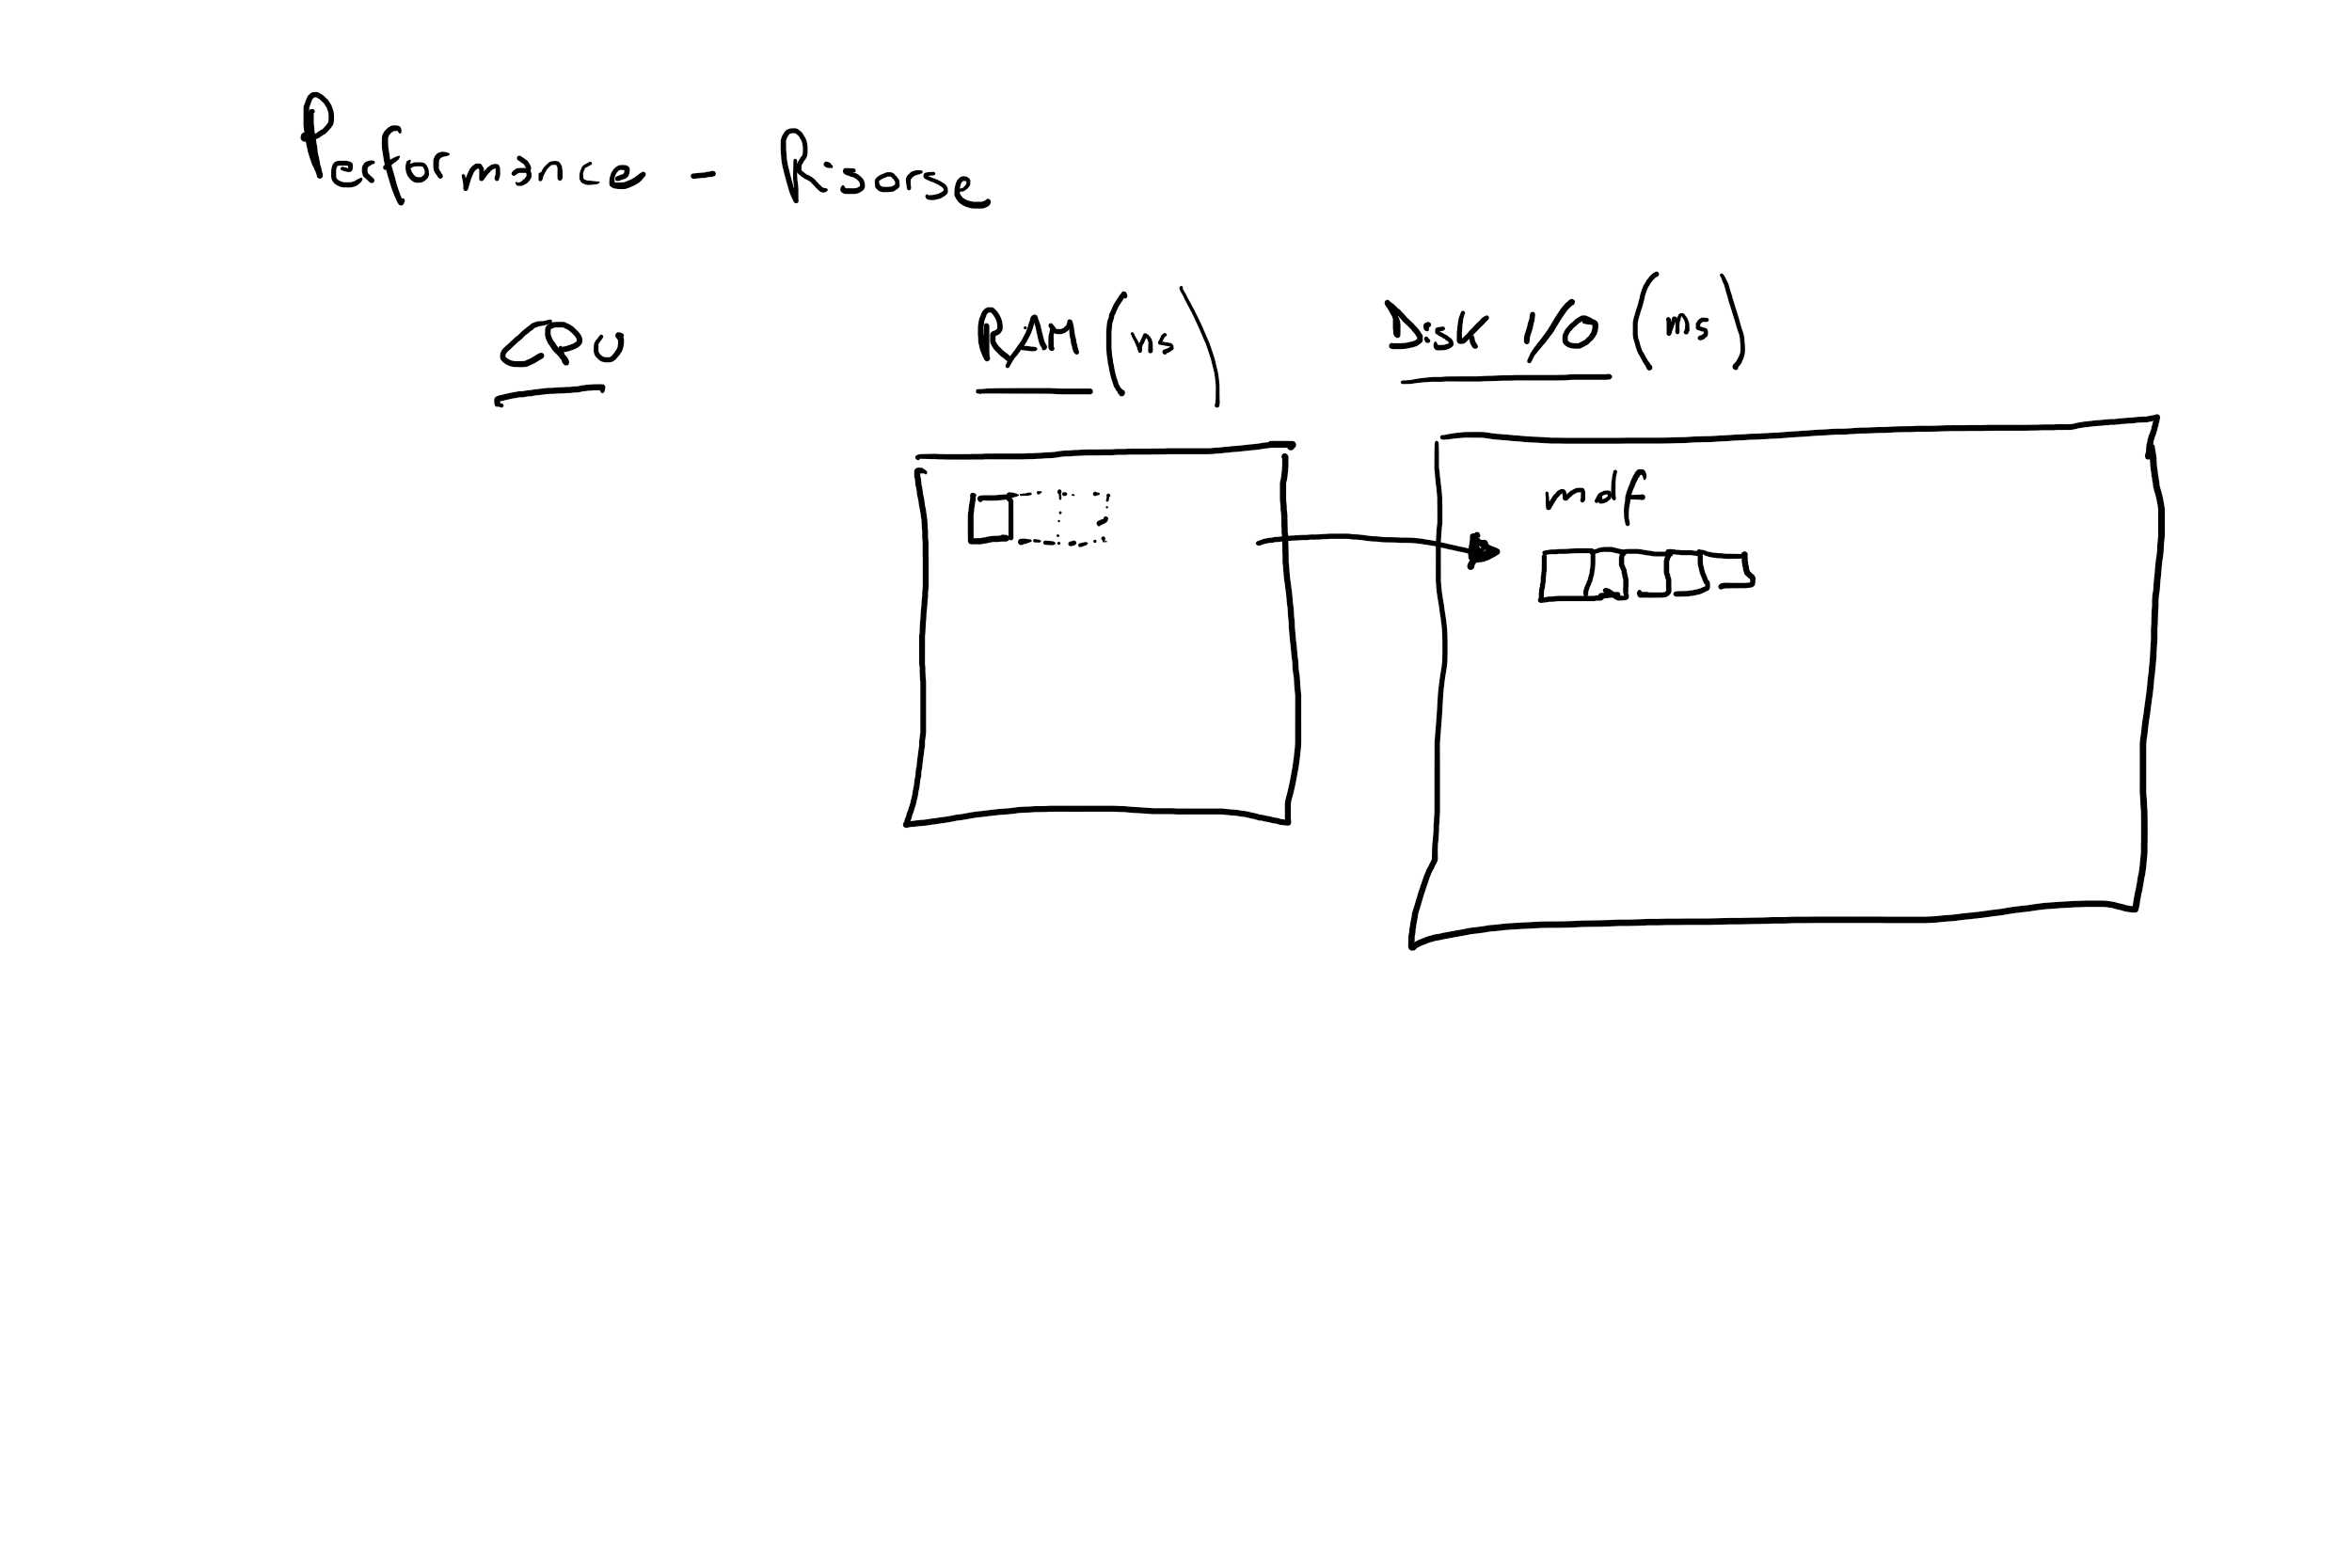 Performance - Risorse
CPU RAM (ns) Disk I/O (ms)
mdf